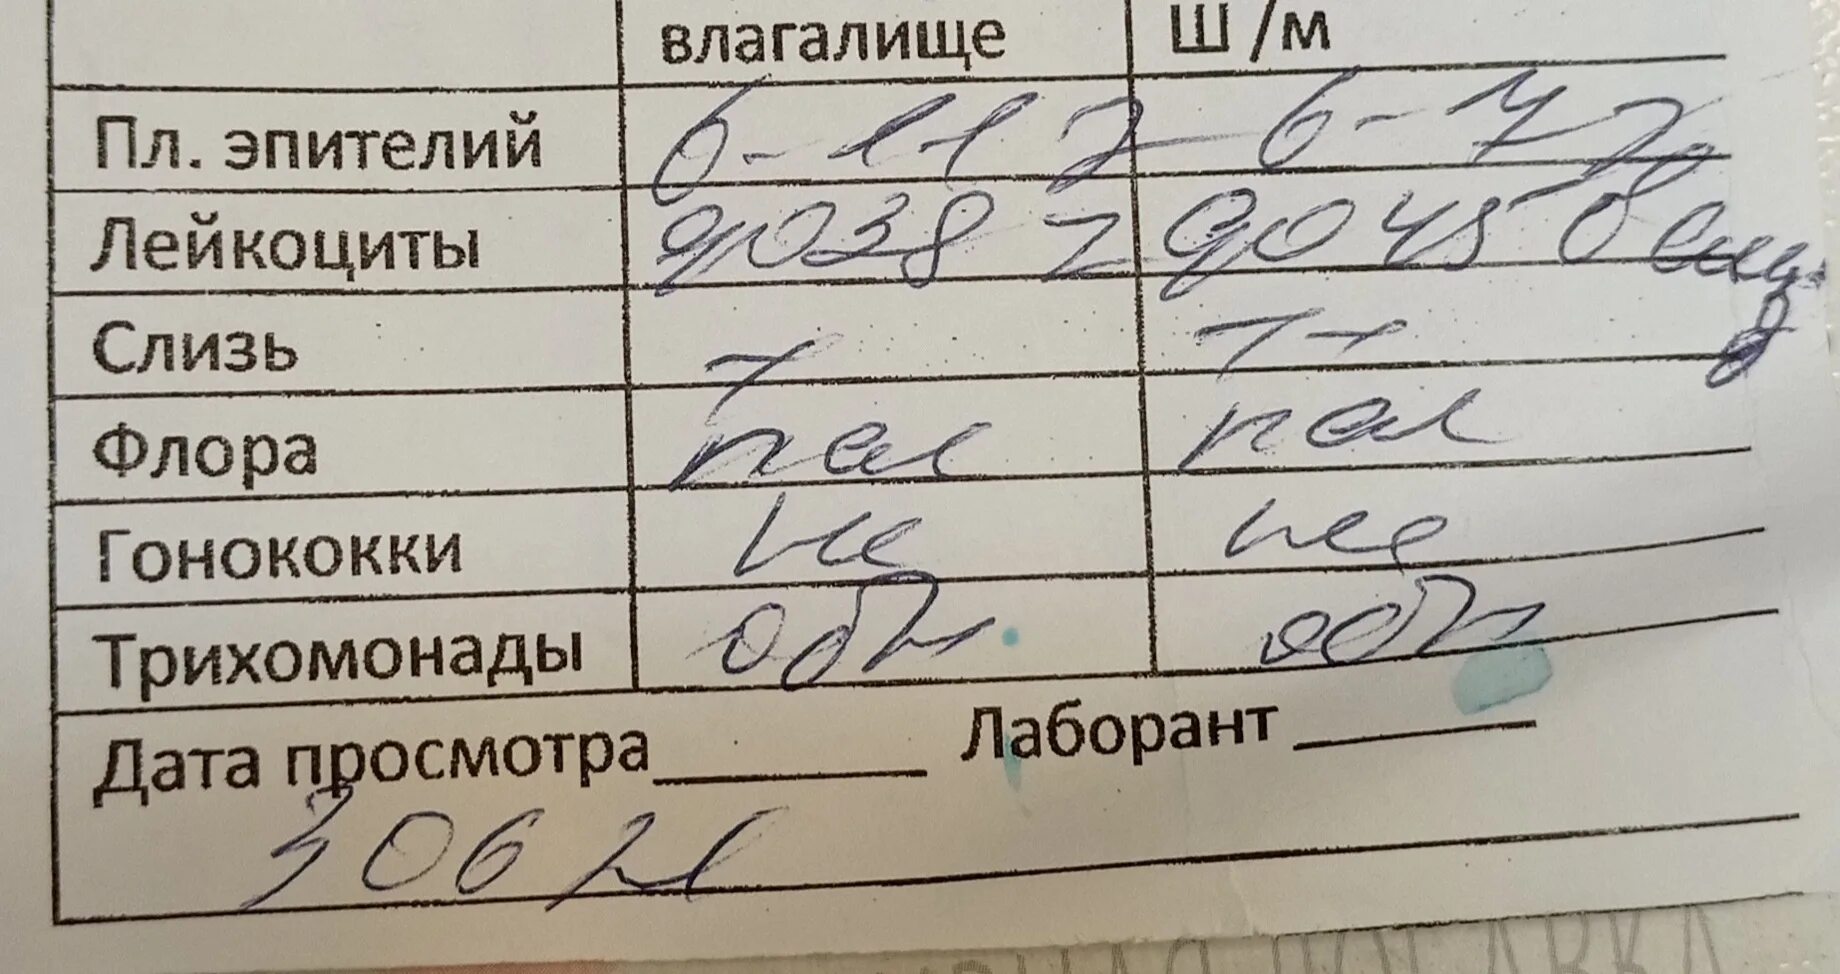 влагалище Ш/м
Пл. эпителий 6-11 6-7
Лейкоциты до 38 до 45
Слизь + ++
Флора пал пал
Гонококки не не
Трихомонады обн обн
Дата просмотра Лаборант
3 06 21